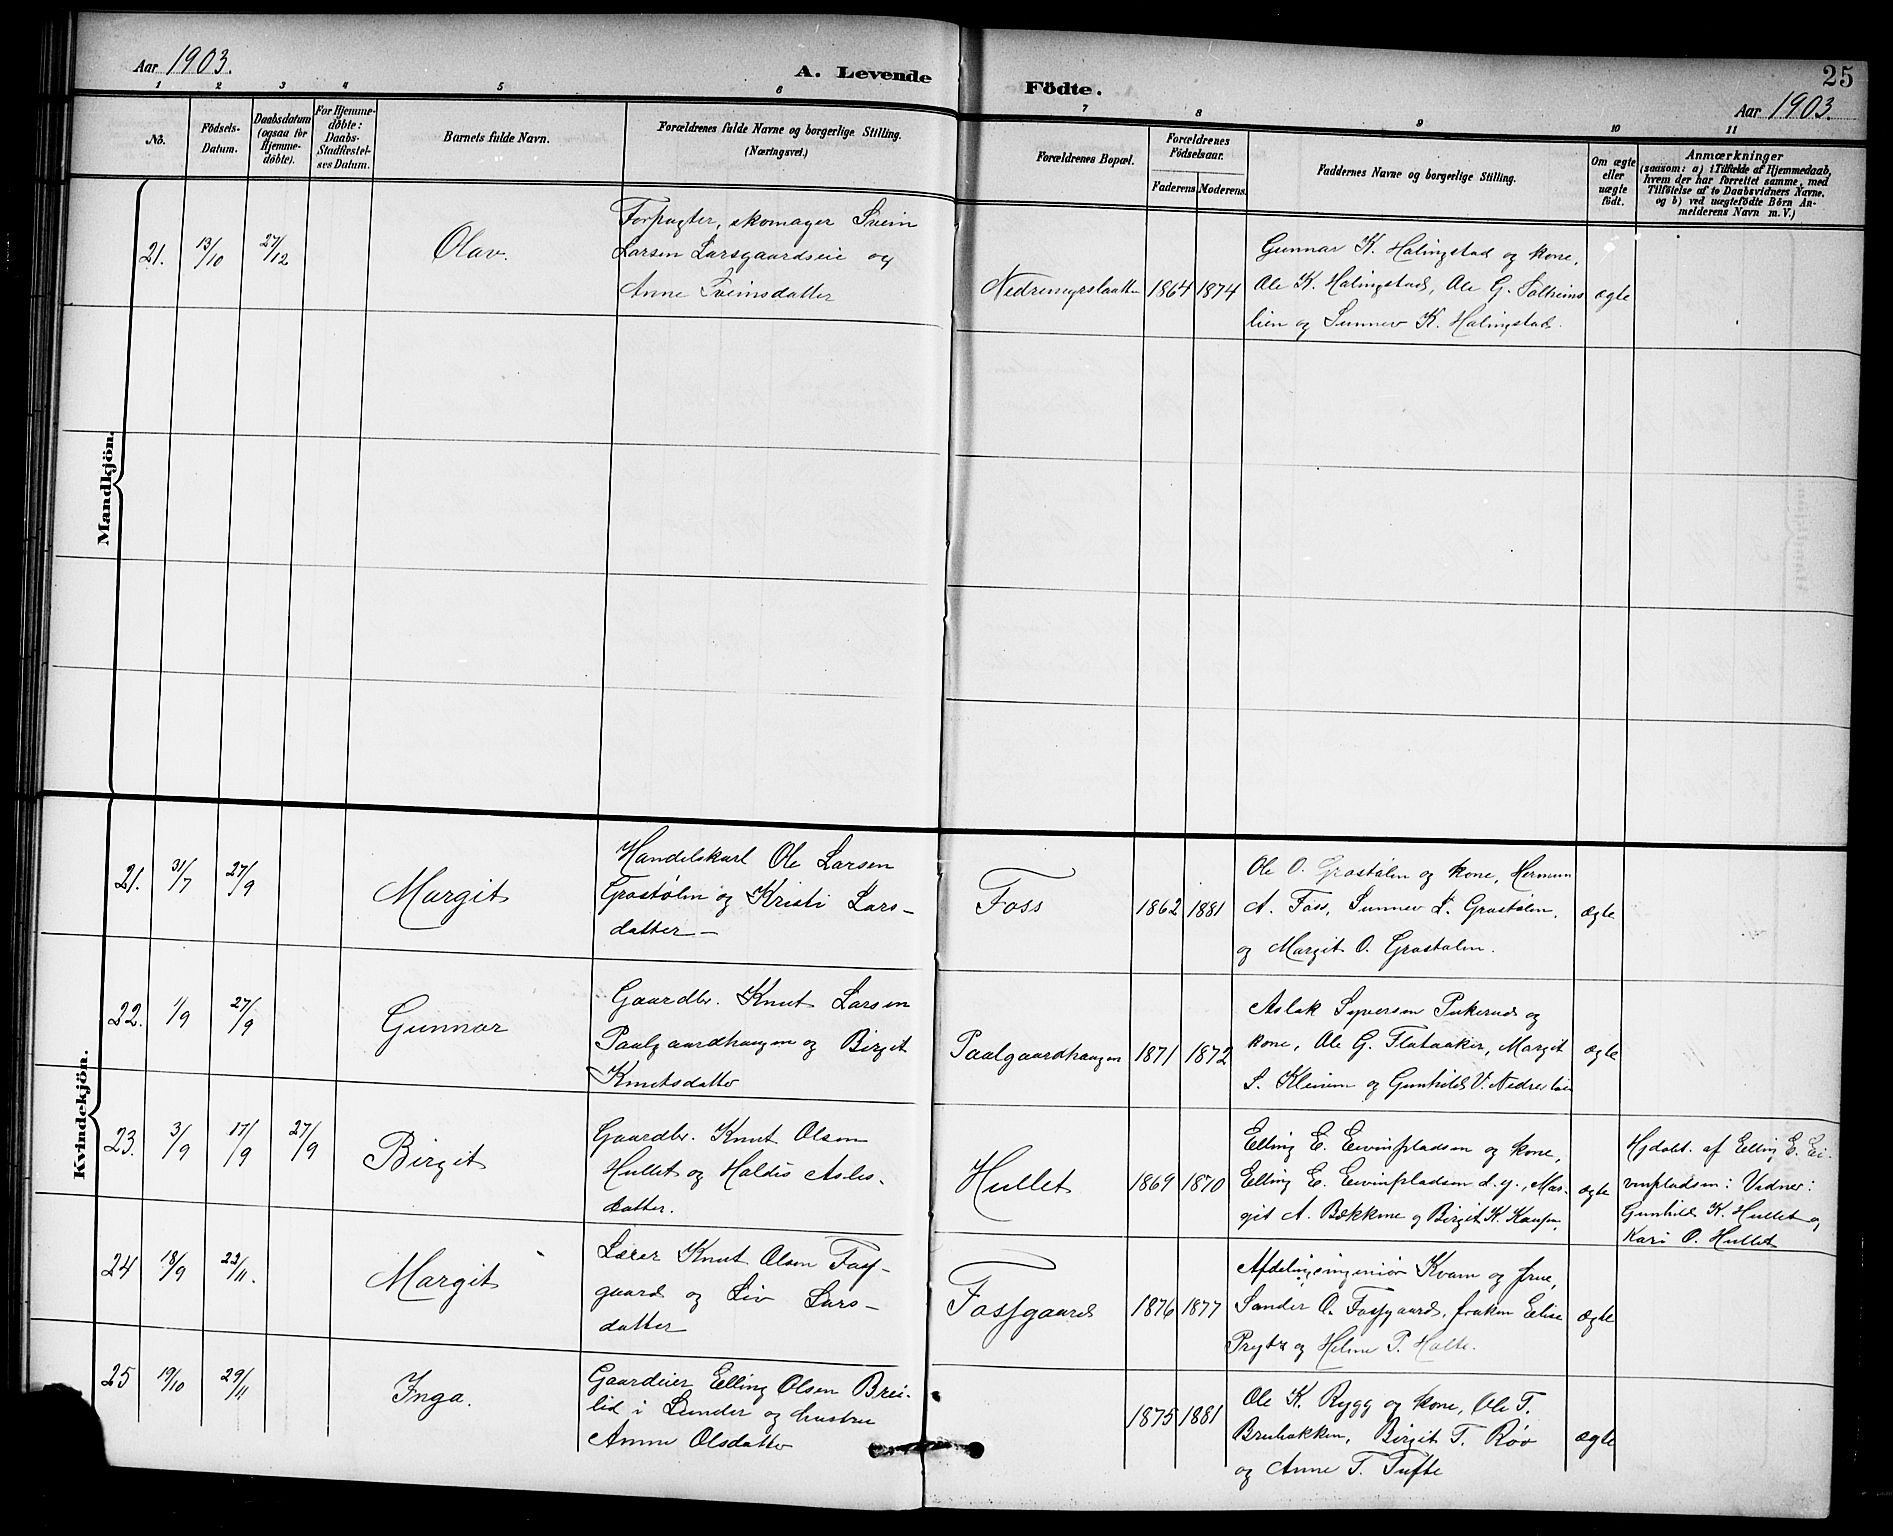 Aar 1903.
A. Levende
Födte.
25
Aar 1903.
1 2 3 4 5 6 7 8 9 10 11
No.
Födsels-
Datum.
Daabsdatum
(ogsaa for
Hjemme-
døbte).
For Hjemme-
døbte:
Daabs-
Stadfæstel-
ses Datum.
Barnets fulde Navn.
Forældrenes fulde Navne og borgerlige Stilling.
(Næringsvei.)
Forældrenes Bopæl.
Forældrenes
Fødselsaar.
Faderens. Moderens.
Faddernes Navne og borgerlige Stilling.
Om ægte
eller
uægte
født.
Anmærkninger
(saasom: a) i Tilfælde af Hjemmedaab,
hvem der har forrettet samme, med
Tilføielse af to Daabsvidners Navne,
og b) ved uægtefødte Börn An-
melderens Navn m. V.)
Mandkjön.
21. 13/10 27/12
Olav.
Forpagter, skomager Svein
Larsen Larsgaardseie og
Anne Sveinsdatter
1864 1874
Gunnar K. Halingstad og kone,
Ole K. Halingstad, Ole G.
lien og Sunnev K. Halingstad.
ægte
Kvindekjön.
21. 31/7 27/9
Margit
Handelskarl Ole Larsen
Grøstølen og Kristi Lars-
datter -
Foss
1862 1881
Ole O. Grøstølen og kone, Herman
A. Foss, Sunnev L. Grøstølen,
og Margit O. Grøstølen.
ægte
22. 1/9 27/9
Gunnar
Gaardbr. Knut Larsen
Paalgaardhaugen og Birgit
Knutsdatter
Paalgaardhaugen
1871 1872
Aslak Syversen Pukerud og
kone, Ole G. Flataaker, Margit
S. og Gunhild V. Nedrelien
ægte
23. 3/9 17/9 27/9
Birgit
Gaardbr. Knut Olsen
Hullet og Haldis Asles-
datter.
Hullet
1869 1870
Elling E. Eivinspladsen og kone,
Elling E. Eivinspladsen d. y., Mar-
git A. Bækkene og Birgit K.
ægte
Hjdøbt. af Elling E. Ei-
vinspladsen: Vidner:
Gunhild K. Hullet og
Kari O. Hullet
24 18/9 22/11.
Margit
Lærer Knut Olsen Foss-
gaard og Liv Lars-
datter
Fossgaard
1876 1877
Afdelingsingeniør Kvam og frue,
Sander O. Fossgaard, frøken Elise
Prytz og Helene P. Holte.
ægte
25 19/10 29/11
Inga.
Gaardeier Elling Olsen Brei-
lid i Sunder og hustru
Anne Olsdatter
1875 1881
Ole K. Rygg og kone, Ole T.
Brubakken, Birgit T. Røv
og Anne T. Tufte
ægte